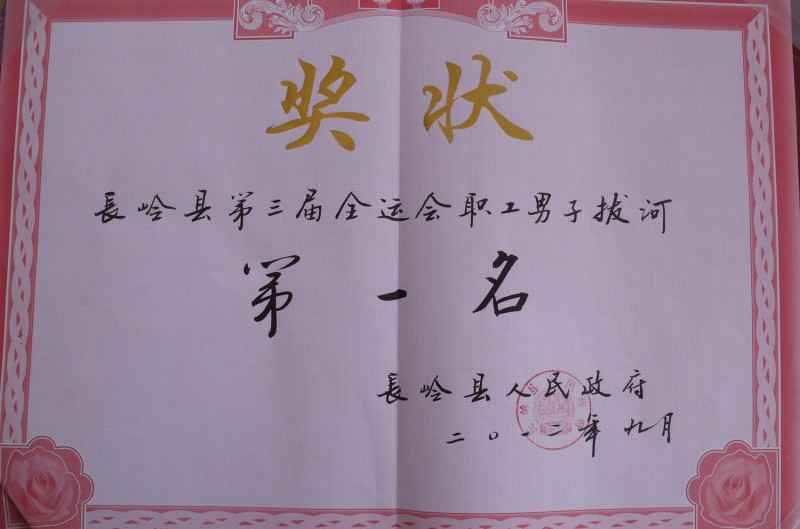 奖状
長岭县第三届全运会职工男子拔河
第一名
長岭县人民政府
二〇一二年九月